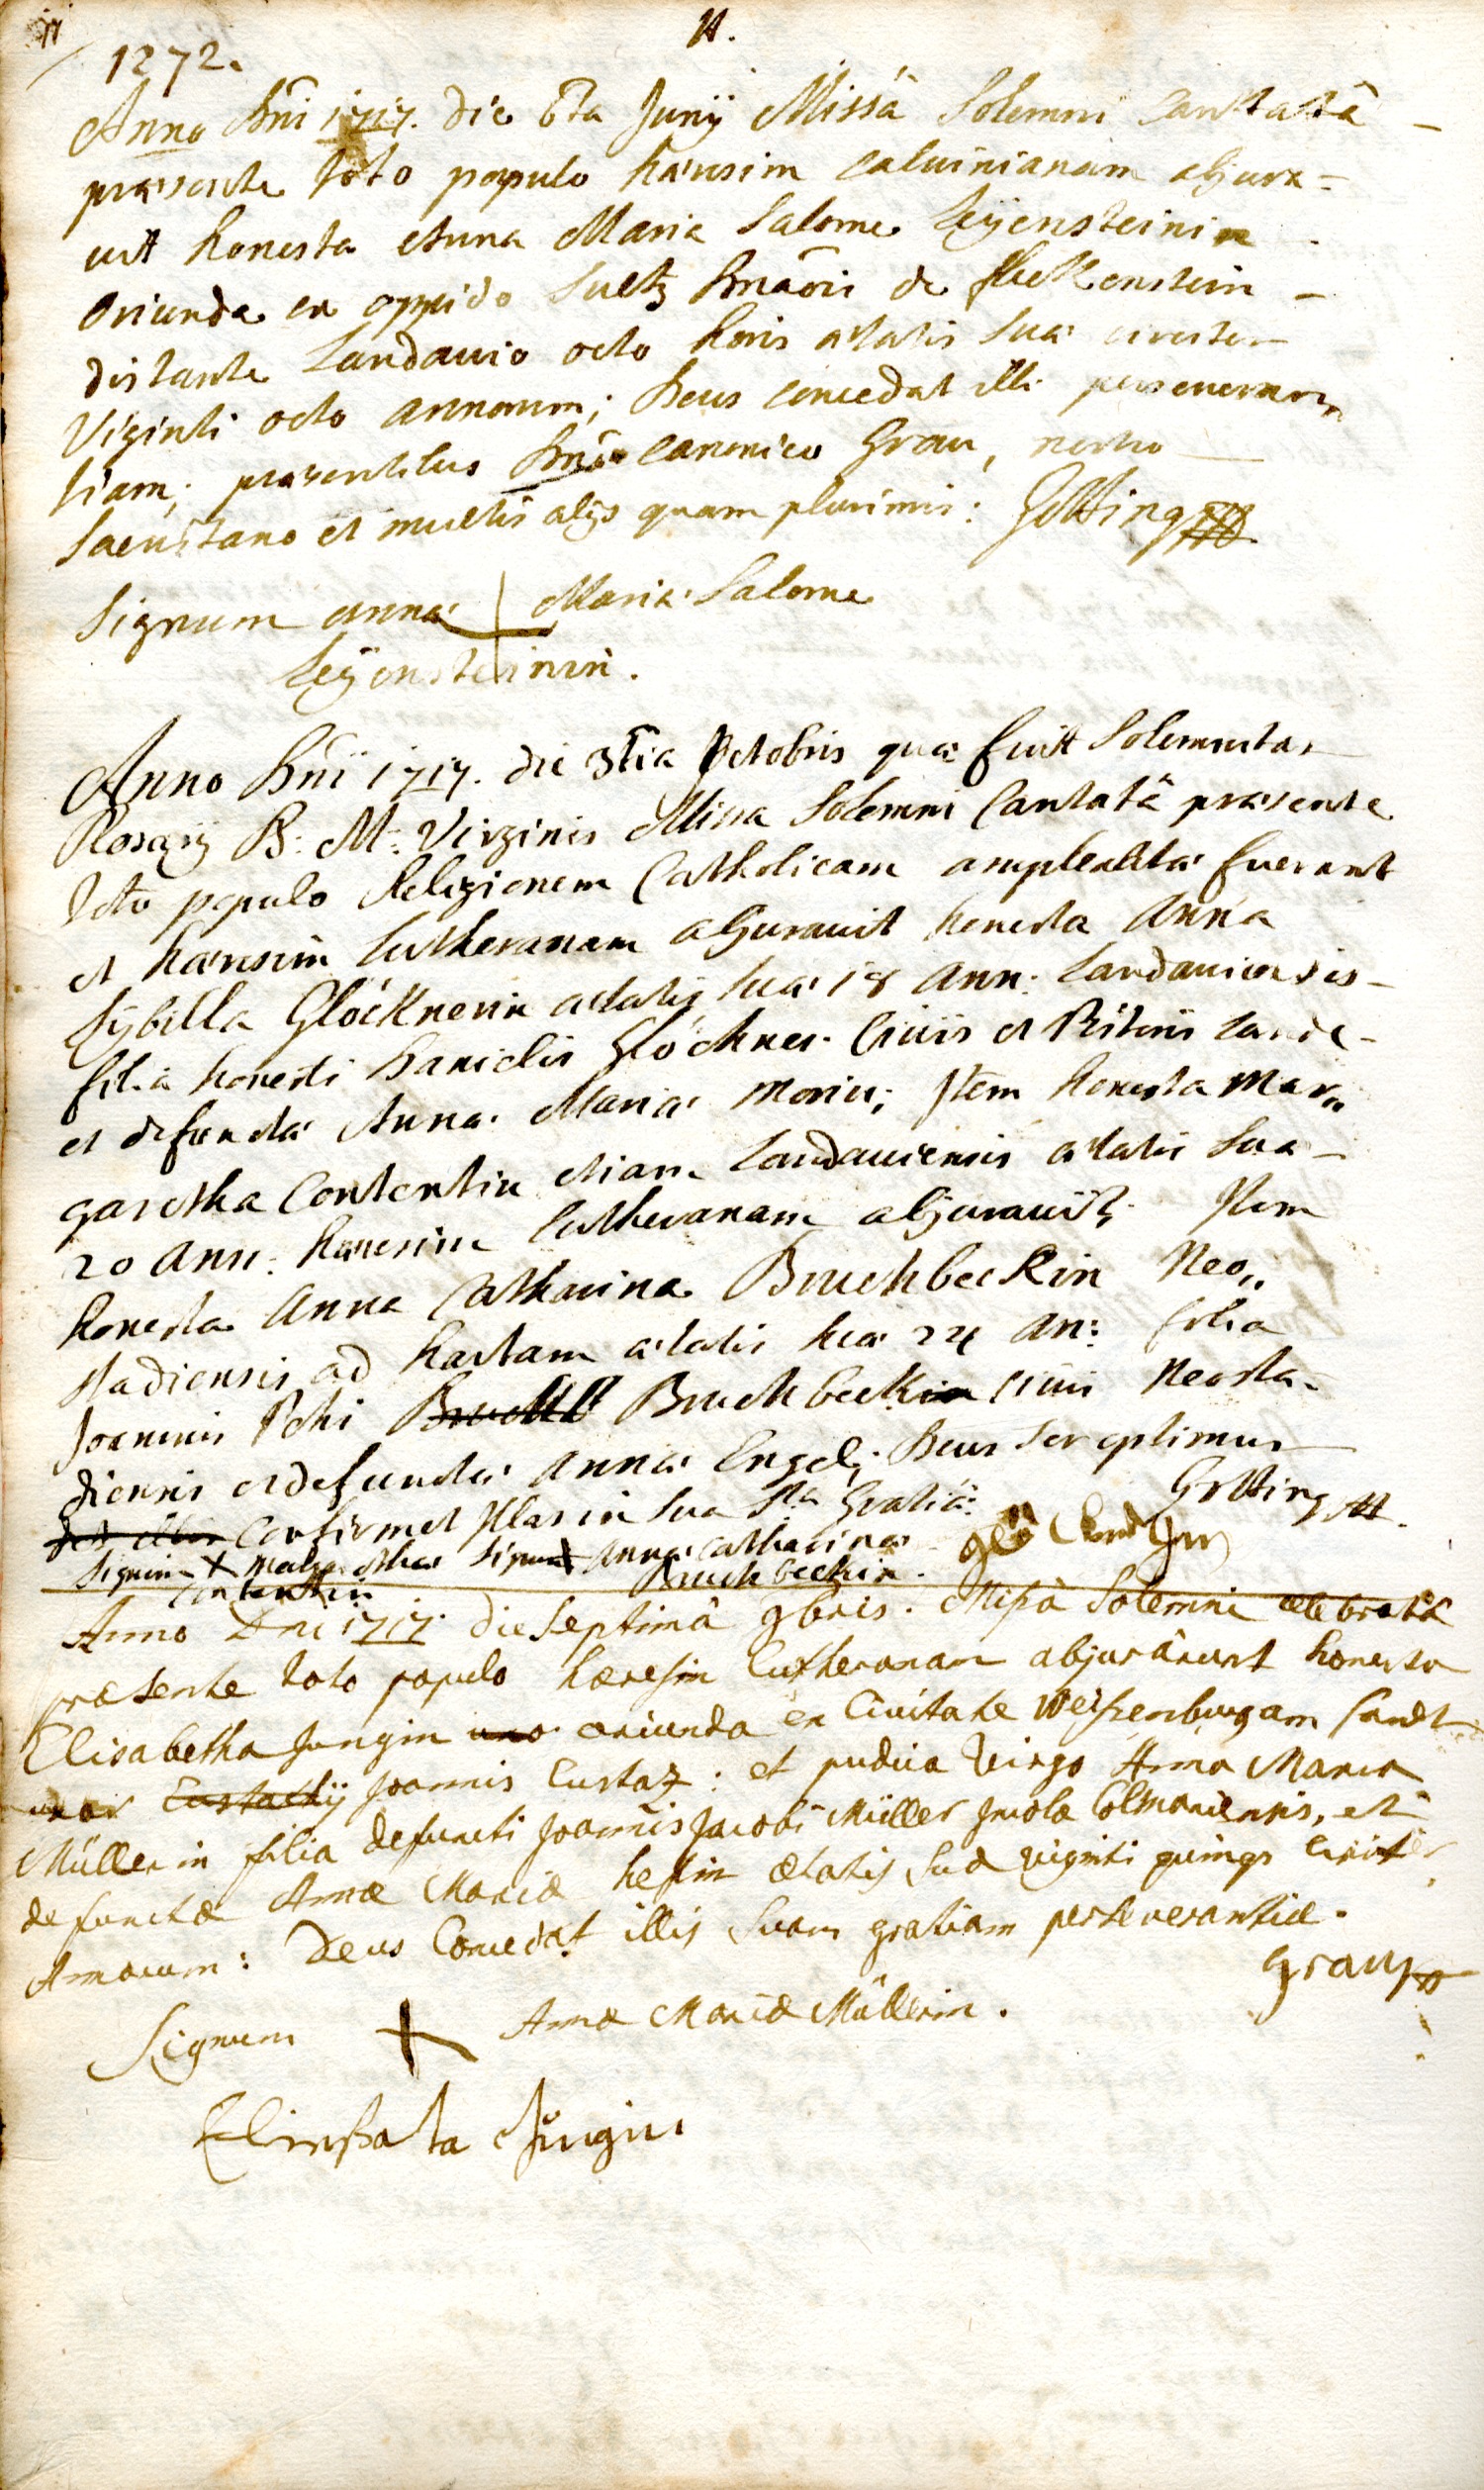 11.
1272.
Anno Dni 1717. die 6ta Junij Missâ Solemni Cantatâ
præsente toto populo hæresim Caluinianam abjura-
uit honesta Anna Maria Salome Leÿensteinin
Oriunda ex oppido Sultz de fleckenstein
distante Landauio octo horis ætatis suæ circiter
Viginti octo annorum; Deus concedat illi perseueran,,
tiam; præsentibus Dno Canonico Grau, nostro
et multis alijs quam plurimis: Götting
Signum Annæ Mariæ Salome
Leÿensteinin.
Anno Dni 1717. die 3tia Octobris quæ fuit Solemnitas
Rosarij B: M: Virginis Missa Solemni Cantatâ præsente
toto populo Religionem Catholicam amplexatæ fuerunt
et hæresim Lutheranam abjurauit honesta Anna
Sÿbilla Glöcknerin ætatis suæ 18 ann: Landauiensis
filia honesti Danielis Glöckner Ciuis et
et defunctæ Annæ Mariæ Item honesta Mar,,
garetha Contentin etiam Landauiensis ætatis Suæ
20 ann: hæresim Lutheranam abjurauit; Item
honesta Anna Catharina Bruchbeckin Neo,,
stadiensis ad hartam ætatis suæ 24 an: filia
Joannis Bruchbeckin ciuis Neosta-
diensis et defunctæ Annæ Engel; Deus ter optimus
Confirmet Illas in sua Sta Gratiâ. Götting
Signum + Margarethæ Signum Annæ Catharinæ
Contentin Bruchbeckin.
Anno Dni 1717 die Septimâ 9bris. Missâ Solemni celebratâ
præsente toto populo hæresin Lutheranam abjurârunt honesta
Elisabetha Jungin oriunda ex Ciuitate Weissenburgam
uxor Eustachij Joannis Eustaz: et pudica Virgo Anna Maria
Müllerin filia defuncti Joannis Jacobi Müller Incolæ Colmariensis, et
defunctæ Annæ Mariæ heslin ætatis suæ viginti quinqs circiter
Annorum: Deus Concedat illis suam gratiam perseuerantiæ.
Grau
Signum + Annæ Mariæ Müllerin.
Jungin